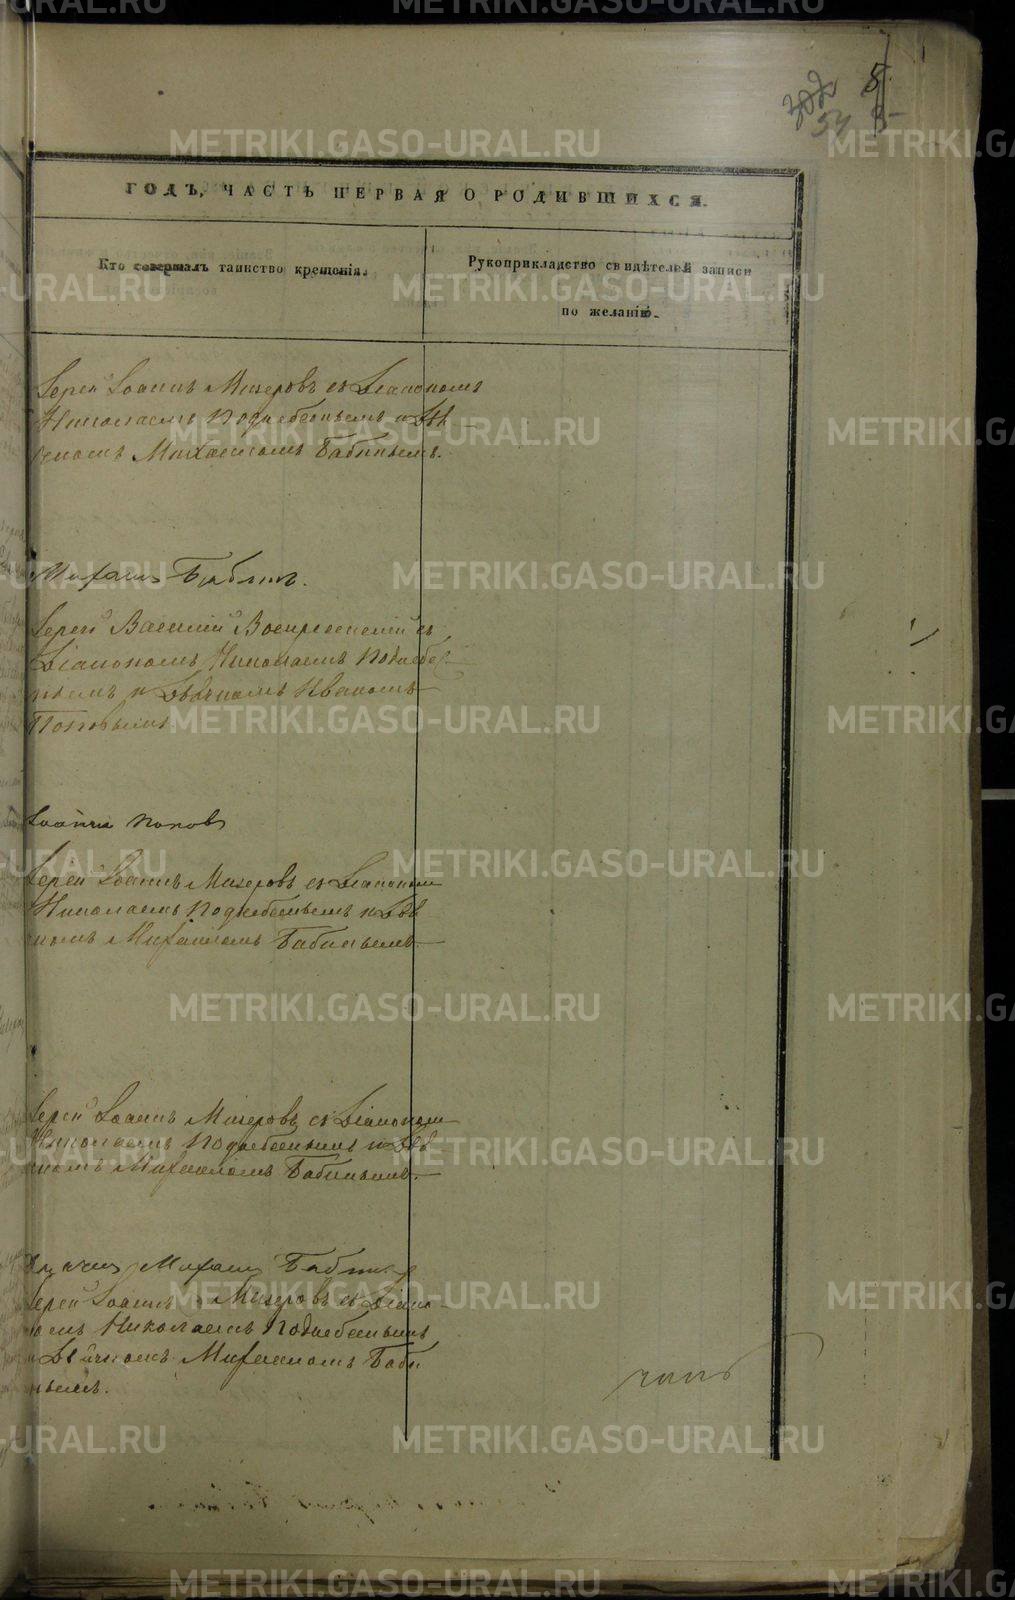 5
54
ГОДЪ, ЧАСТЬ ПЕРВАЯ О РОДИВШИХСЯ.
Кто совершалъ таинство крещенія.
Рукоприкладство свидѣтелей записи
по желанію.
Іерей Іоаннъ Мизеровъ съ Діакономъ
Николаемъ Поднебеснымъ и Дья
чкомъ Михаиломъ Бабинымъ.
Михаилъ Бабинъ.
Іерей Василій Воскресенскій съ
Діакономъ Николаемъ Поднебес
нымъ и Дьячкомъ Иваномъ
Поповымъ
Іоаннъ Поповъ
Іерей Іоаннъ Мизеровъ съ Діакономъ
Николаемъ Поднебеснымъ и Дья
чкомъ Михаиломъ Бабинымъ
Іерей Іоаннъ Мизеровъ съ Діакономъ
Николаемъ Поднебеснымъ и Дья
чкомъ Михаиломъ Бабинымъ.
Михаилъ Бабинъ
Іерей Іоаннъ Мизеровъ съ Діако
номъ Николаемъ Поднебеснымъ
и Дьячкомъ Михаиломъ Баби
нымъ.
METRIKI.GASO-URAL.RU